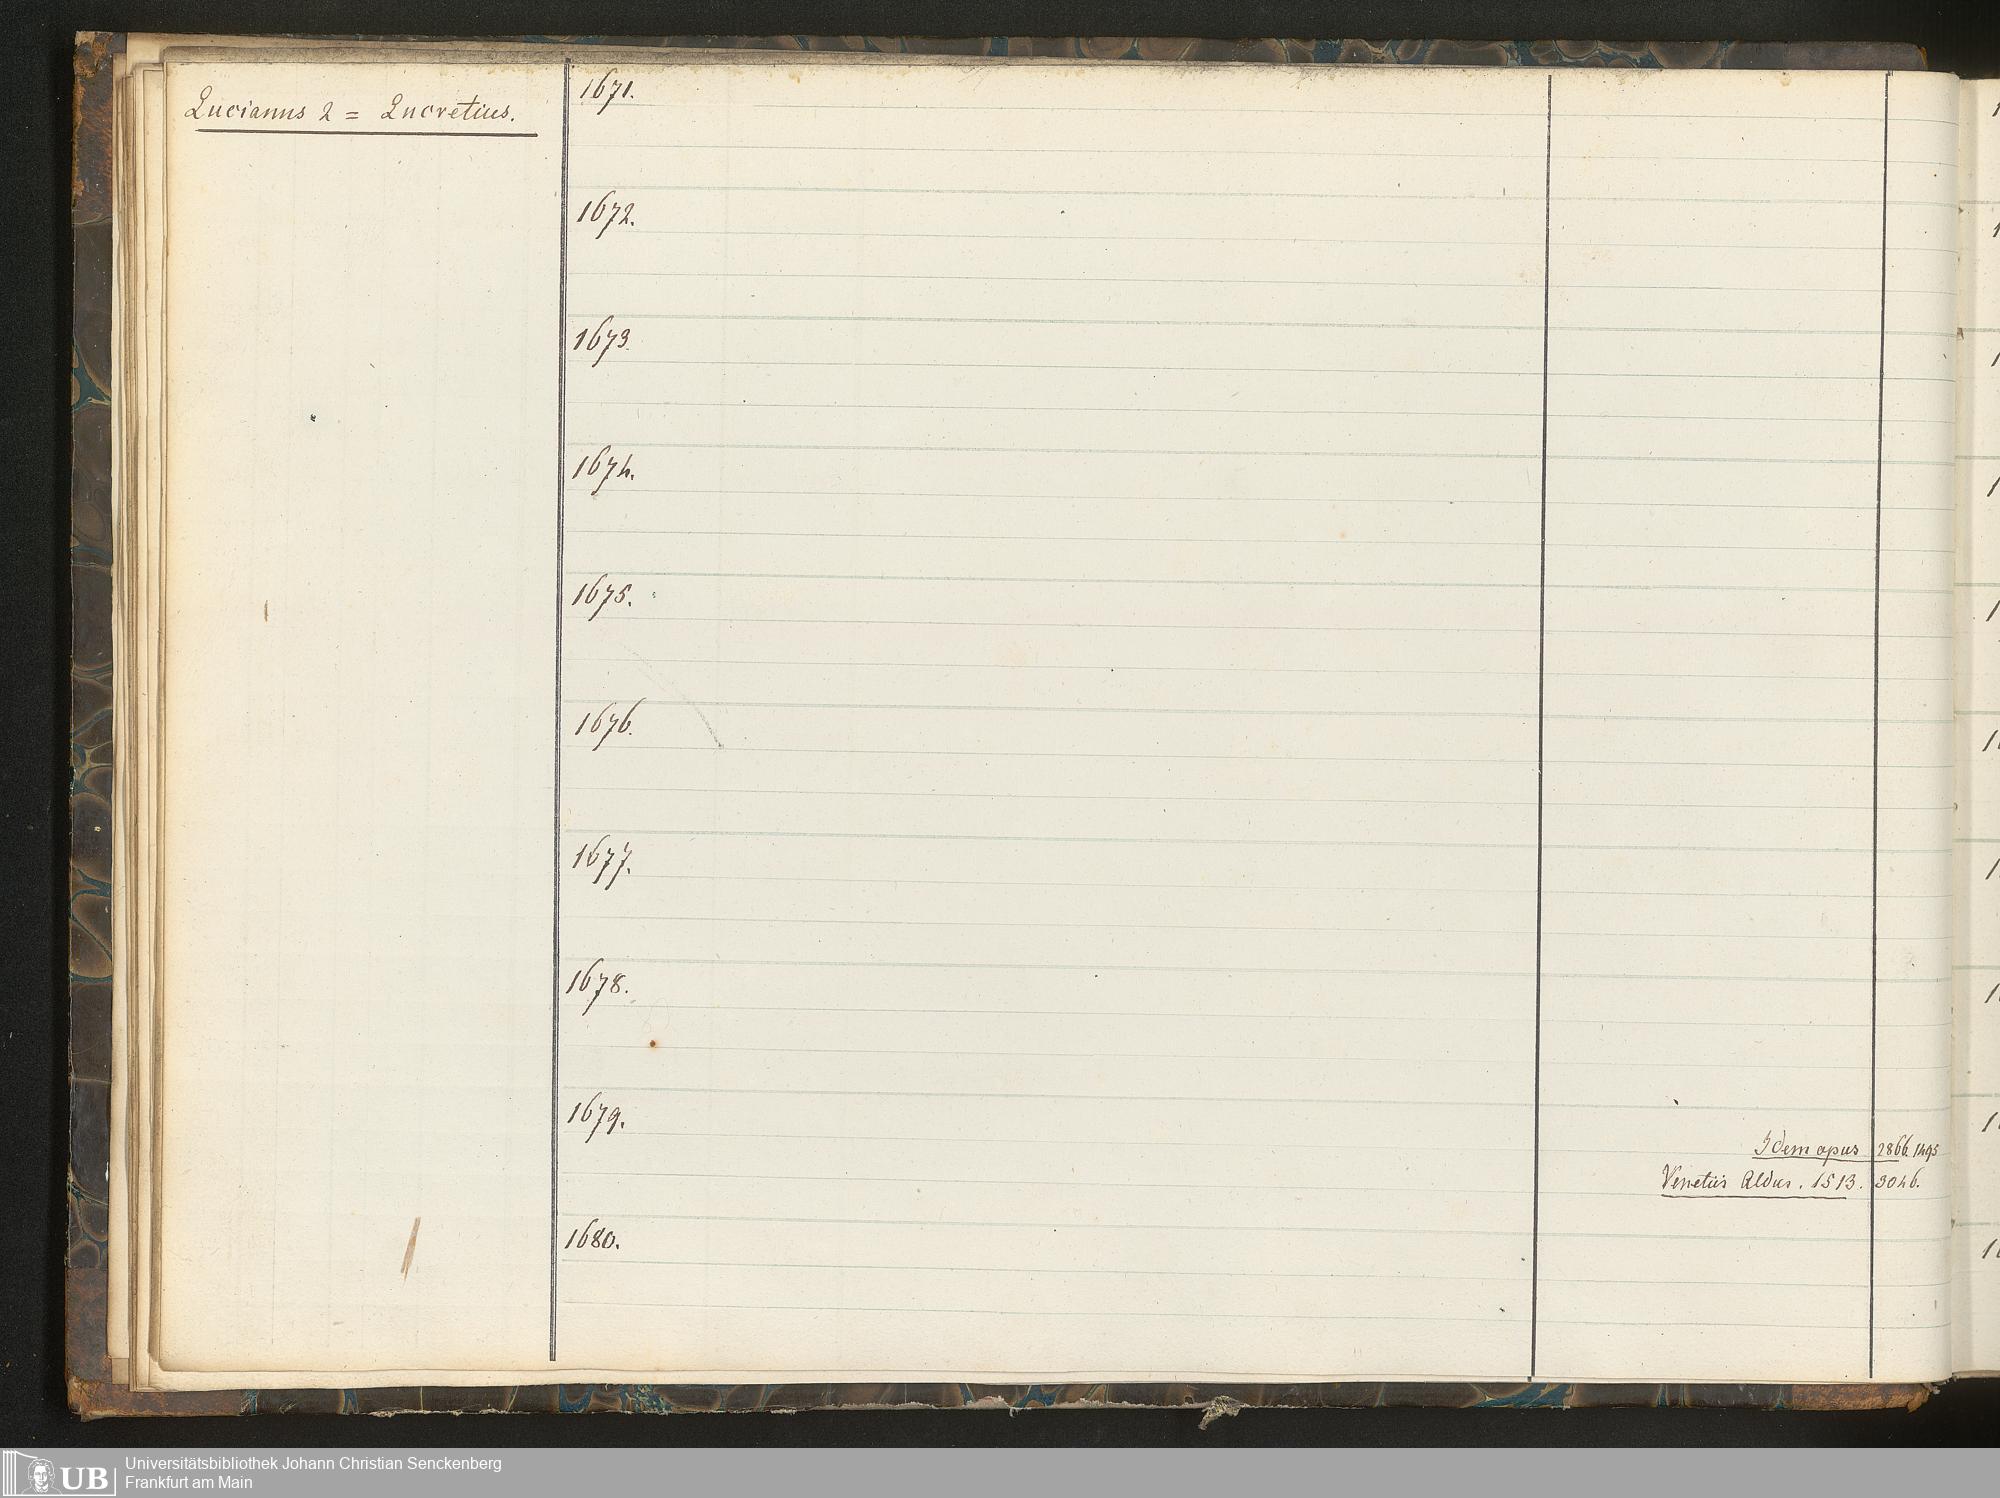 Lucianus 2 = Lucretius.
1671.
1672.
1673.
1674.
1675.
1676.
1677.
1678.
1679.
Idem opus 2866. 1495
Venetiis Aldus. 1513. 3046.
1680.
UB
Universitätsbibliothek Johann Christian Senckenberg
Frankfurt am Main